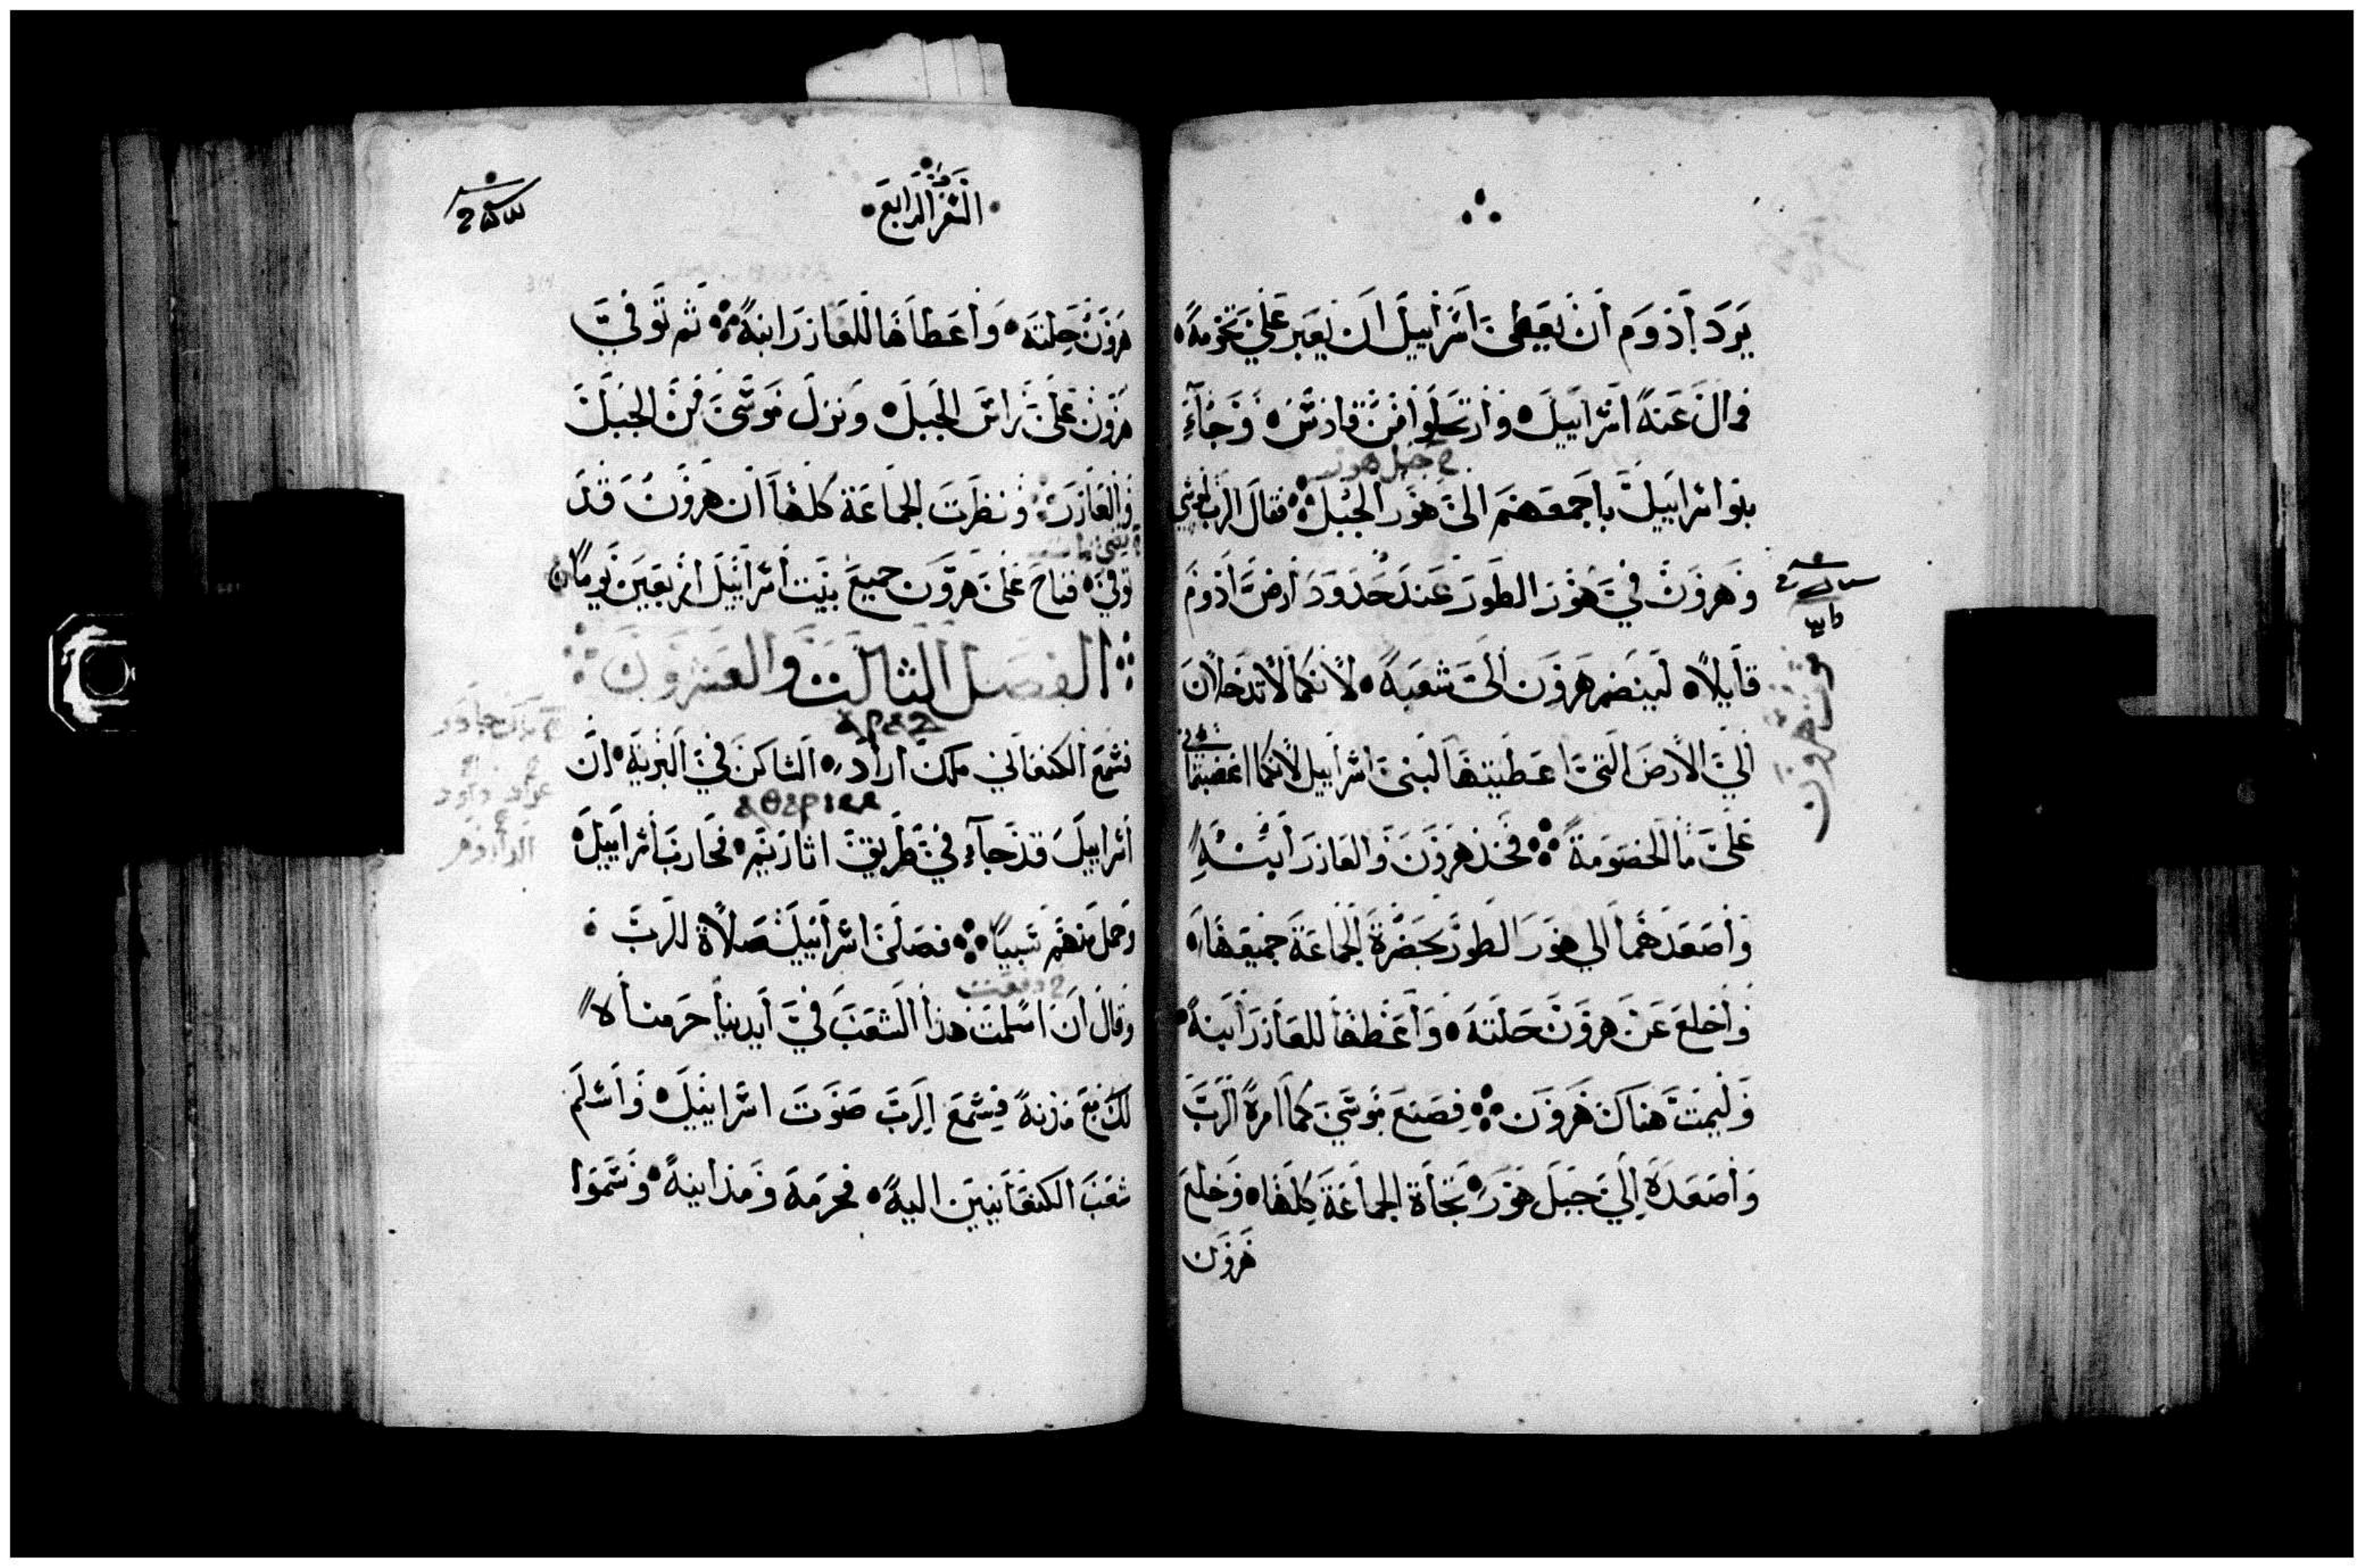 يرد ادوم ان يعطى اسراييل ان يعبر على تخومه
فمال عنه اسراييل وارتحلوا من قادس وجآء
بنوا اسراييل باجمعهم الى هور الجبل فقال الرب لموسى
وهرون في هور الطور عند حدود ارض ادوم
قايلا لينضم هرون الى شعبه لانكما لا تدخلان
الي الارض التى اعطيتها لبنى اسراييل لانكما اغضبتمانى
على ما الخصومة فخذ هرون والعازر ابنه
واصعدهما الي هور الطور بحضرة الجماعة جميعها
واخلع عن هرون حلته واعطها للعازر ابنه
وليمت هناك هرون فصنع موسي كما امره الرب
واصعده الي جبل هور تجاة الجماعة كلها وخلع
هرون
السفر الرابع
هرون حلته واعطاها للعازر ابنه ثم توفي
هرون على راس الجبل ونزل موسى من الجبل
والعازر ونظرت الجماعة كلها ان هرون قد
توفي فناح على هرون جميع بنيت اسراييل اربعين يوما
الفصل الثالث والعشرون
فسمع الكنعاني ملك اراد الساكن في البرية ان
اسراييل قد جآء في طريق اثارتيم فحارب اسراييل
وحمل منهم سبيا فصلى اسراييل صلاة للرب
وقال ان اسلمت هذا الشعب في ايدينا حرمناه
لك مع مدنه فسمع الرب صوت اسراييل واسلم
شعب الكنعانيين اليه فحرمه ومداينه وسموا